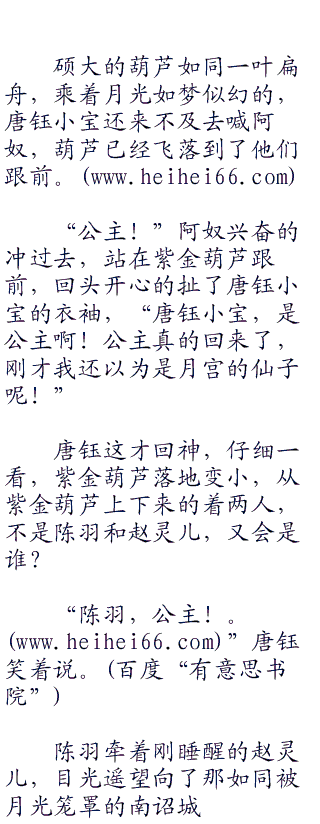 硕大的葫芦如同一叶扁
舟，乘着月光如梦似幻的，
唐钰小宝还来不及去喊阿
奴，葫芦已经飞落到了他们
跟前。(www.heihei66.com)
“公主！”阿奴兴奋的
冲过去，站在紫金葫芦跟
前，回头开心的扯了唐钰小
宝的衣袖，“唐钰小宝，是
公主啊！公主真的回来了，
刚才我还以为是月宫的仙子
呢！”
唐钰这才回神，仔细一
看，紫金葫芦落地变小，从
紫金葫芦上下来的着两人，
不是陈羽和赵灵儿，又会是
谁？
“陈羽，公主！。
(www.heihei66.com)”唐钰
笑着说。(百度“有意思书
院”)
陈羽牵着刚睡醒的赵灵
儿，目光遥望向了那如同被
月光笼罩的南诏城